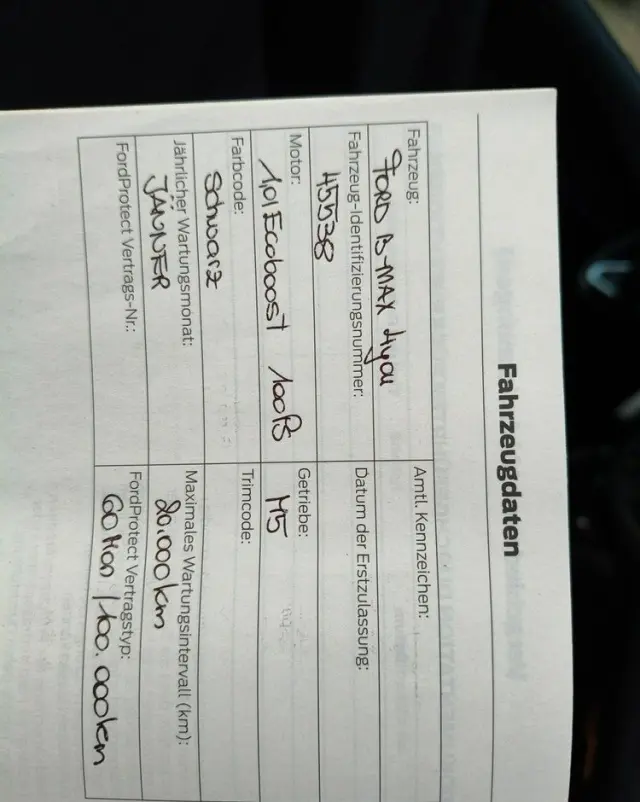 Fahrzeugdaten
Fahrzeug:
FORD B-MAX
Amtl. Kennzeichen:
Fahrzeug-Identifizierungsnummer:
45538
Datum der Erstzulassung:
Motor:
1,0l Ecoboost 100PS
Getriebe:
M5
Farbcode:
Schwarz
Trimcode:
Jährlicher Wartungsmonat:
JÄNNER
Maximales Wartungsintervall (km):
20.000km
FordProtect Vertrags-Nr.:
FordProtect Vertragstyp:
60 Mon / 100.000km